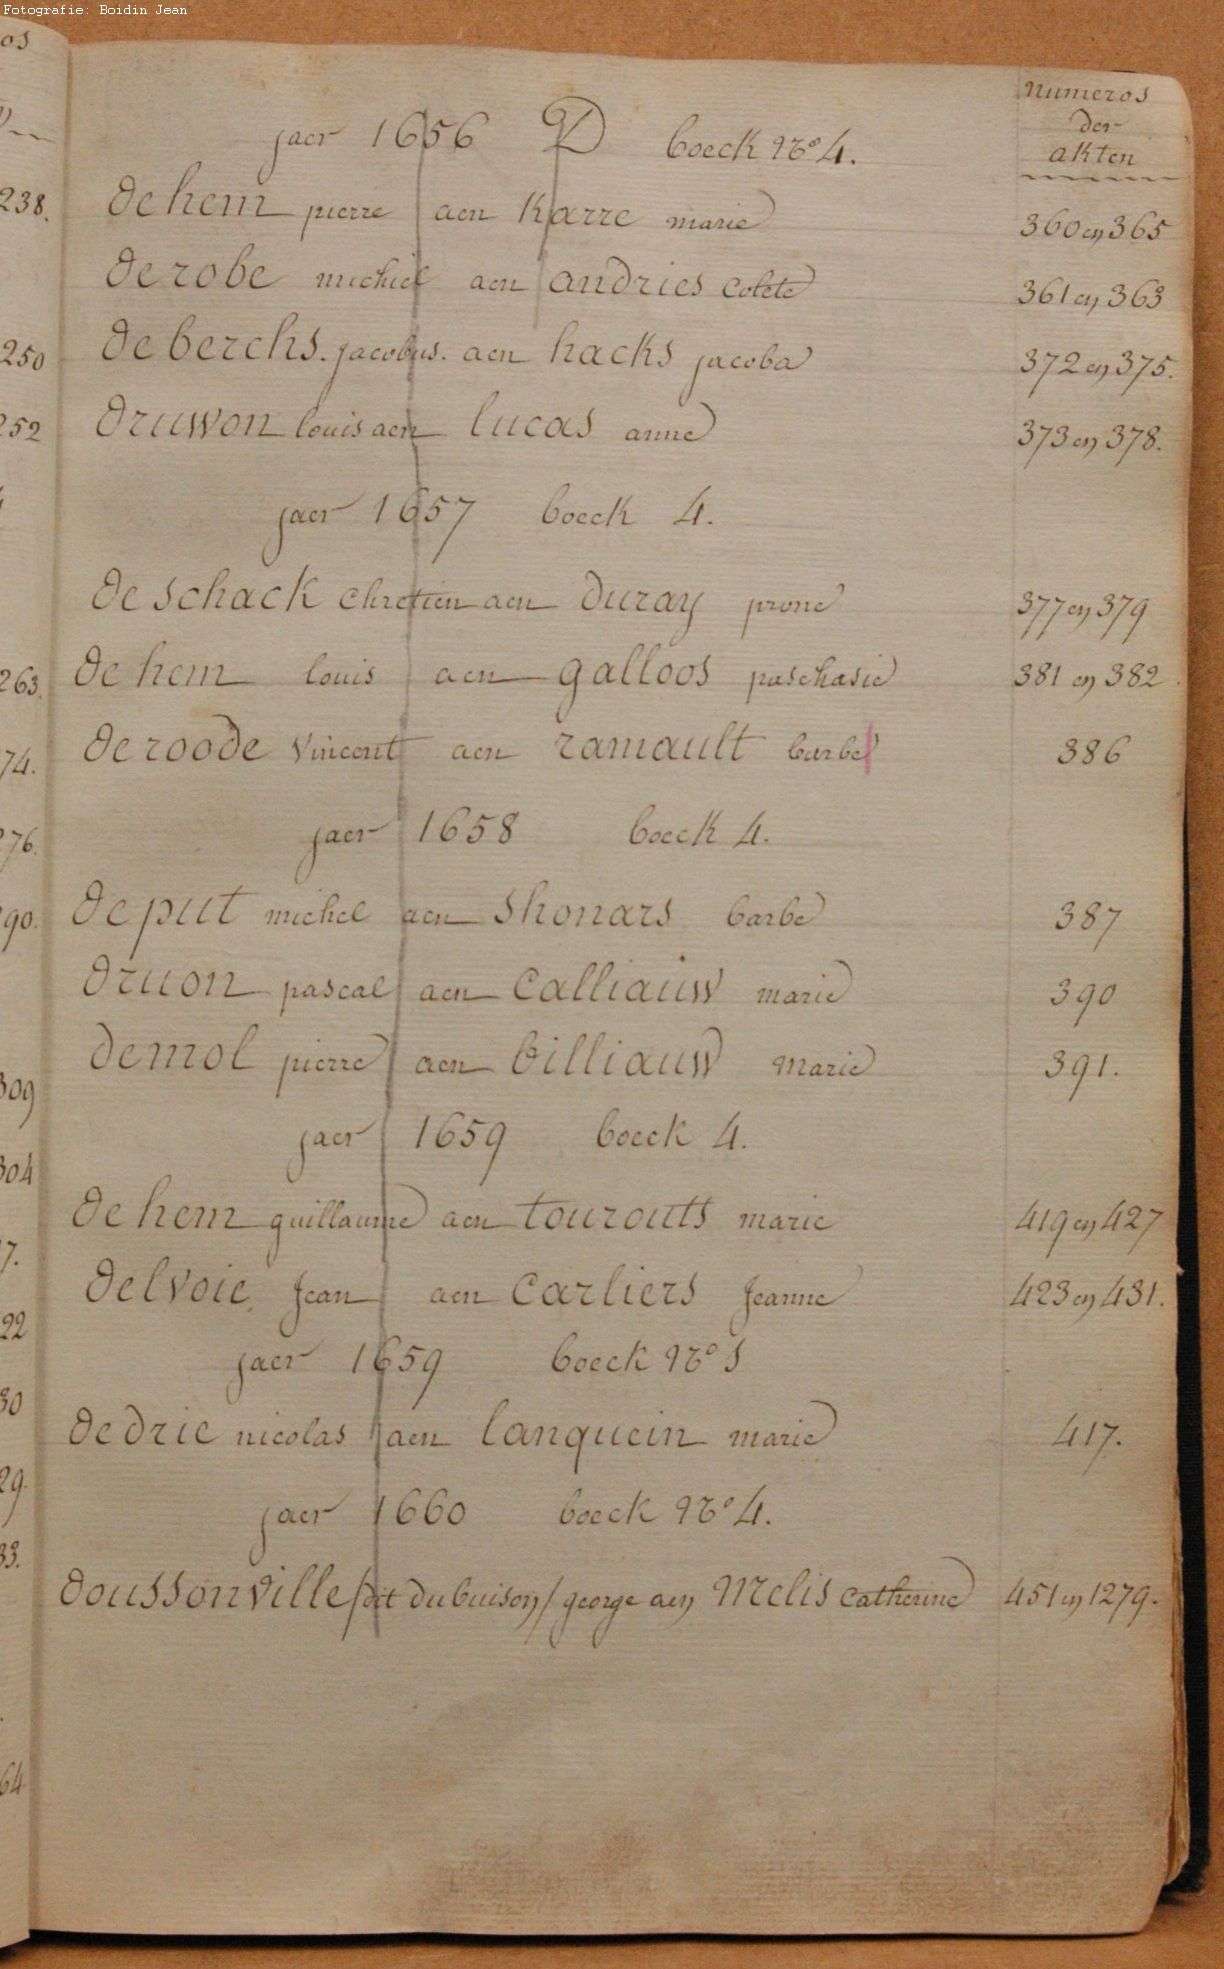 Fotografie: Boidin Jean
os
numeros
der
akten
jaer 1656 D boeck No 4.
238.
dehem pierre aen Karre marie 360 en 365
derobe michiel aen andries colete 361 en 363
250
deberchs. jacobus. aen hacks jacoba 372 en 375.
252
druwon louis aen lucas anne 373 en 378.
jaer 1657 boeck 4.
deschack chretien aen duray prone 377 en 379
263.
dehem louis aen galloos paschasie 381 en 382
74.
deroode vincent aen ramault barbe 386
276.
jaer 1658 boeck 4.
90.
deput michel aen shonars barbe 387
druon pascal aen calliauw marie 390
demol pierre aen billiauw marie 391.
309
jaer 1659 boeck 4.
304
dehem guillaume aen tourouts marie 419 en 427
7.
delvoie Jean aen carliers Jeanne 423 en 431.
22
jaer 1659 boeck No 5
30
dedrie nicolas aen lanquein marie 417.
29.
jaer 1660 boeck No 4.
33.
doussonville /dit dubuison/ george aen Melis catherine 451 en 1279.
64